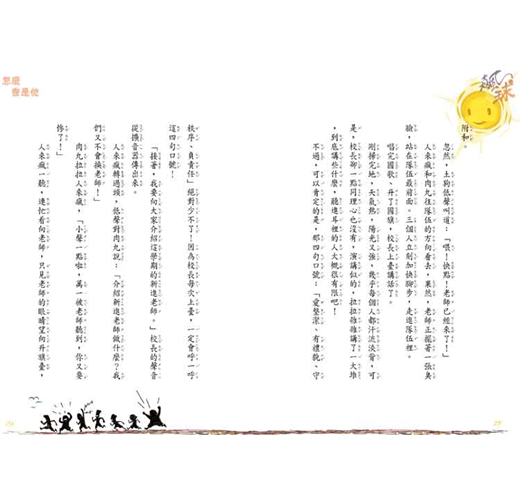 附和。
忽然，土狗低聲叫道：「喂！快點！老師已經來了！」
人來瘋和肉九往隊伍的方向看去，果然，老師正擺著一張臭
臉，站在隊伍最前面。三個人立刻加快腳步，走進隊伍裡。
唱完國歌、升了國旗，校長上臺講話了。
剛掃完地，天氣熱，陽光又強，幾乎每個人都汗流浹背，可
是，校長卻一點同理心也沒有，演講似的，拉拉雜雜講了一大堆
，到底講些什麼，聽進耳裡的人大概很有限吧！
不過，可以肯定的是，那四句口號：「愛整潔、有禮貌、守
秩序、負責任」絕對少不了！因為校長每次上臺，一定會呼一呼
這四句口號！
「接著，我要向大家介紹這學期的新進老師。」校長的聲音
從擴音器傳出來。
人來瘋轉過頭，低聲對肉九說：「介紹新進老師做什麼？我
們又不會換老師！」
肉九拉拉人來瘋，「小聲一點啦，萬一被老師聽到，你又要
慘了！」
人來瘋一聽，連忙看向老師，只見老師的眼睛望向升旗臺，
怎麼
會是他
球